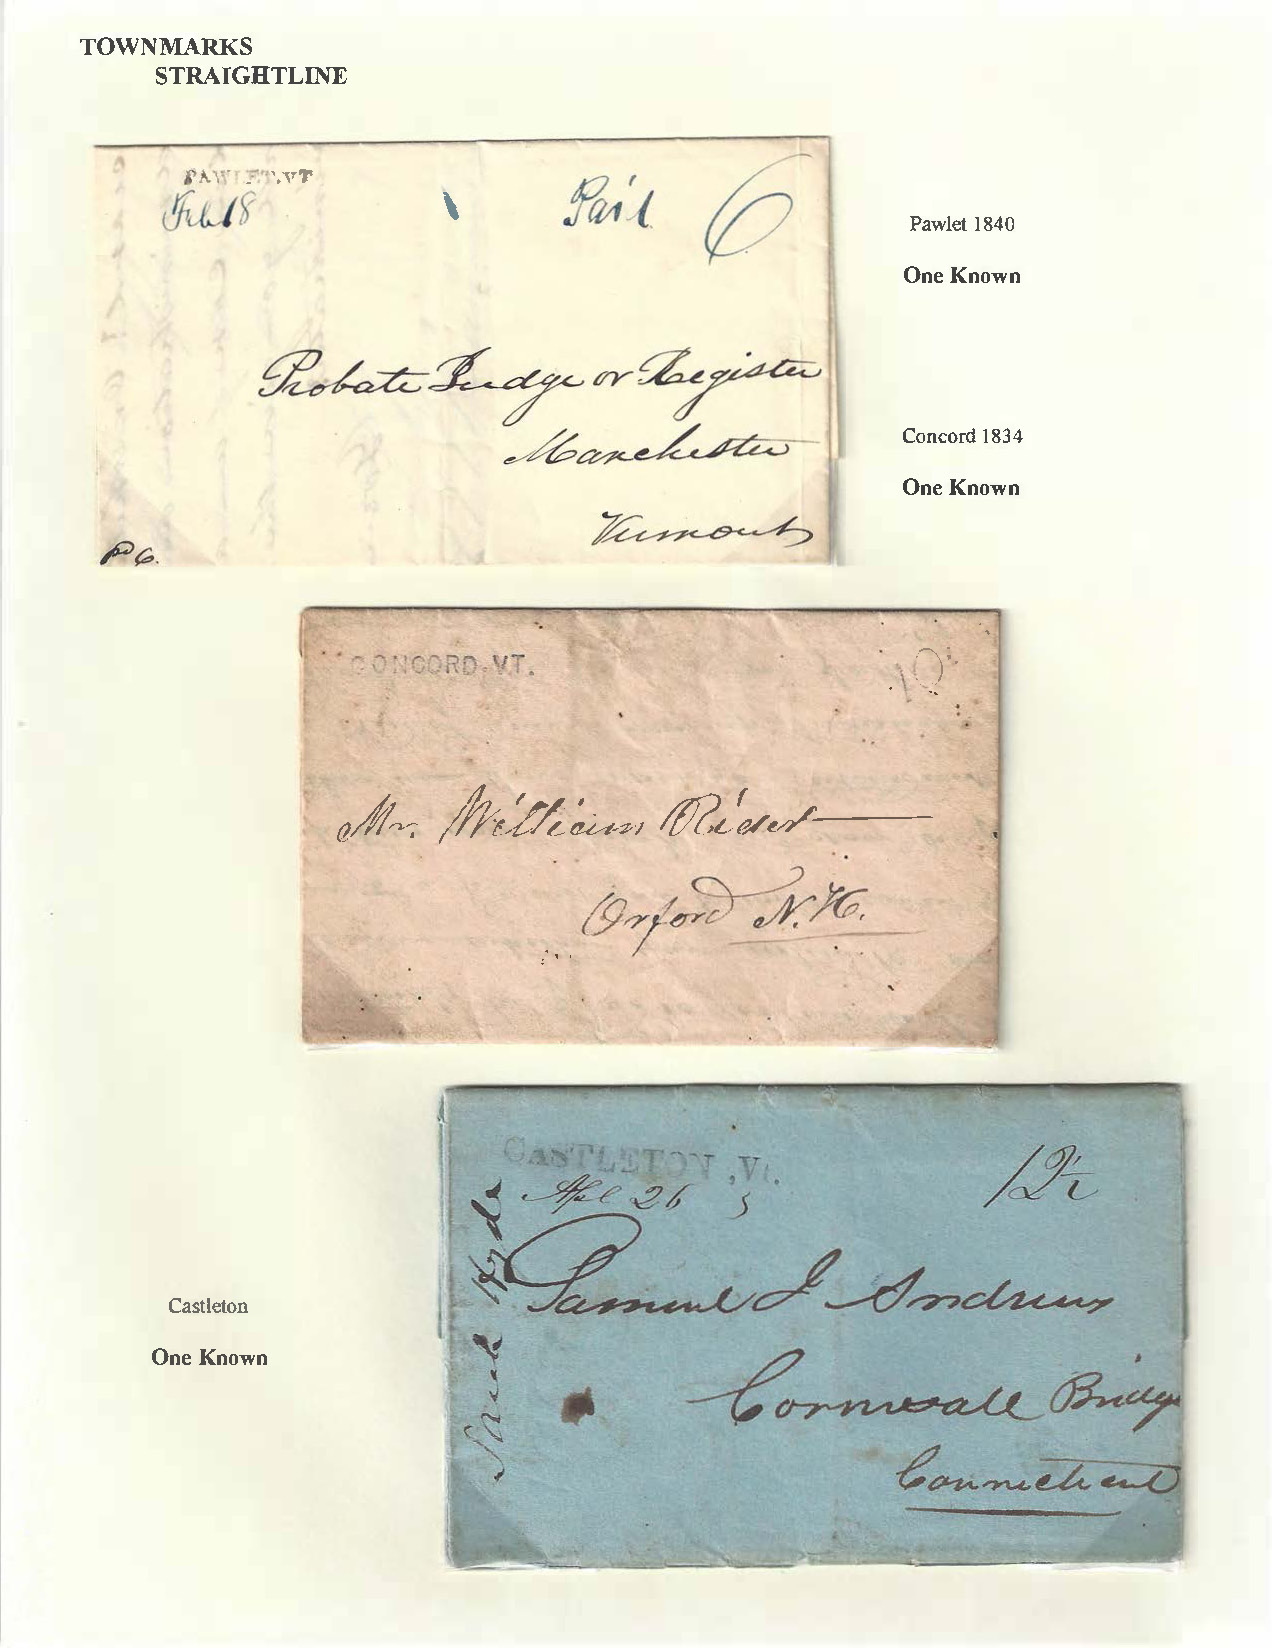 TOWNMARKS
STRAIGHTLINE
PAWLET.VT
Feb 18
Paid 6
Probate Judge or Register
Manchester
Vermont
Pd 6.
Pawlet 1840
One Known
Concord 1834
One Known
CONCORD.VT.
10
Mr. William Rider
Orford N.H.
CASTLETON, Vt.
Apl 26
12½
Samuel J Andrews
Cornwall Bridge
Connecticut
Hyde
Castleton
One Known